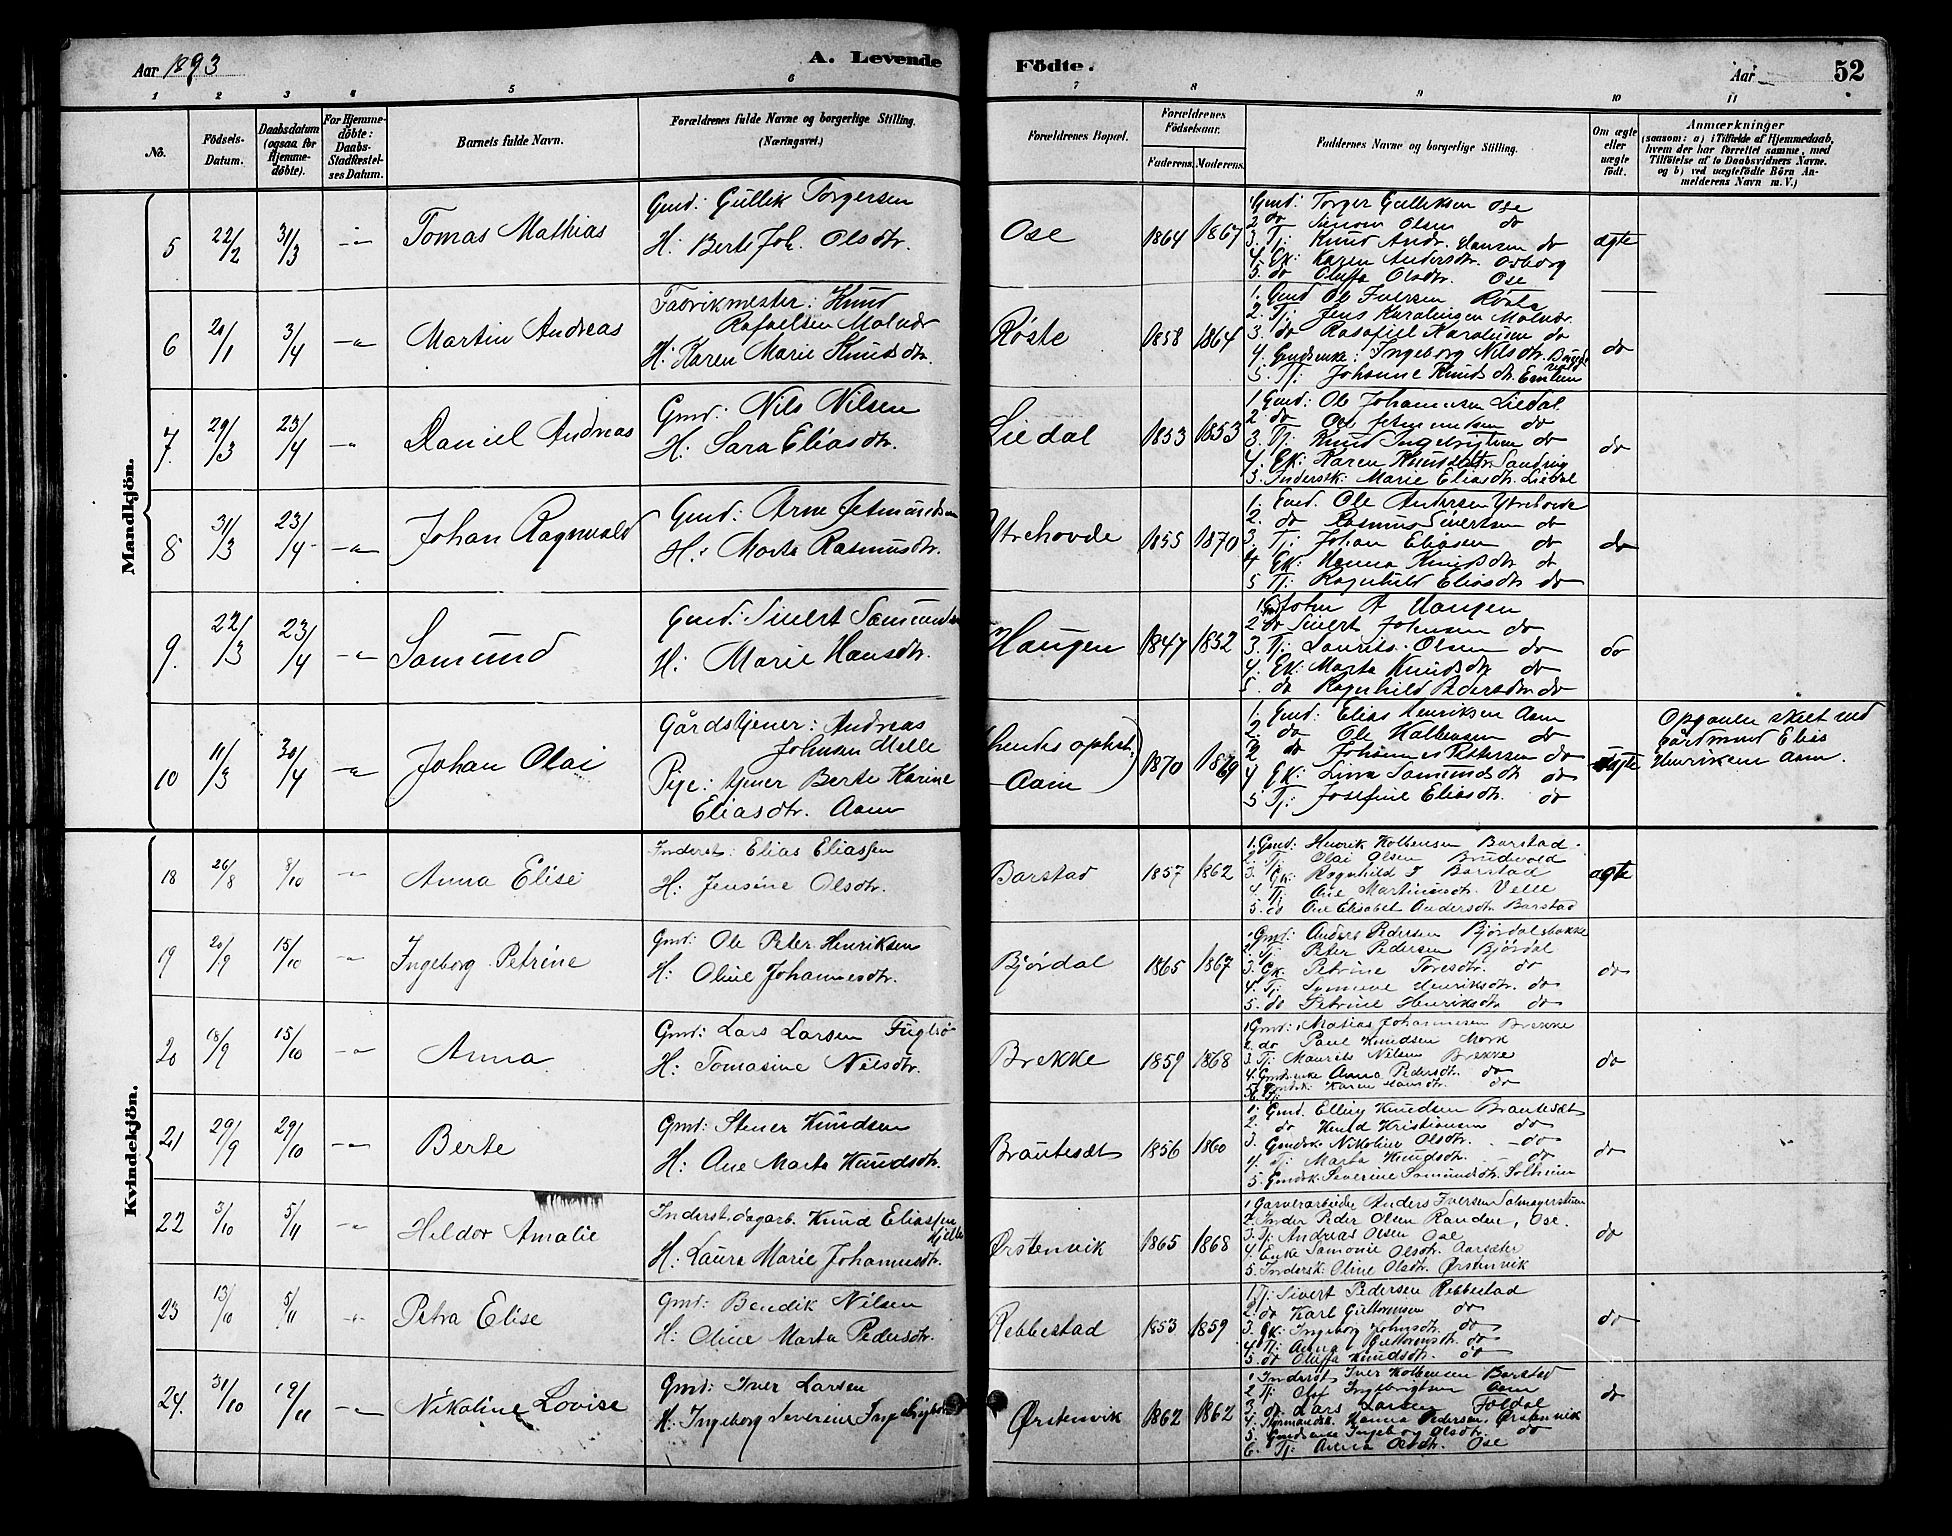 Aar 1893
A. Levende
Födte.
Aar
52
1 2 3 4 5 6 7 8 9 10 11
No.
Födsels-Datum.
Daabsdatum (ogsaa for Hjemme-döbte).
For Hjemme-döbte: Daabs-Stadfæstel-ses Datum.
Barnets fulde Navn.
Forældrenes fulde Navne og borgerlige Stilling. (Næringsvei.)
Forældrenes Bopæl.
Forældrenes Födselsaar.
Faderens. Moderens.
Faddernes Navne og borgerlige Stilling.
Om ægte eller uægte födt.
Anmærkninger
(saasom: a) i Tilfælde af Hjemmedaab,
hvem der har forrettet samme, med
Tilföielse af to Daabsvidners Navne.
og b) ved uægtefödte Börn An-
melderens Navn m. V.)
Mandkjön.
5 22/2 31/3 Tomas Mathias
Gmd: Gullik Torgersen
H: Berte Joh. Olsdtr.
Ose 1864 1867
1 Gmd: Torger Gulliksen Ose
2 do Simon Olsen do
3. Tj: Knud Andr. Hansen do
4. Gk: Karen Andersdtr. Osborg
5. do Oluffa Olsdtr. Ose
ægte
6 20/1 3/4 Martin Andreas
Fabrikmester: Knud
Rafaelsen Molvær
H: Karen Marie Knudsdtr.
Røste 1858 1864
1. Gmd Ole Iversen Røste
2. Tj: Jens Karolinsen Molvær.
3. do Rasafiel Karolusen do
4. Gmdsenke: Ingeborg Nilsdtr.
5. Tj: Johanne Knudsdtr.
do
7. 29/3 23/4 Daniel Andreas
Gmd: Nils Nilsen
H: Sara Eliasdtr.
Liedal 1853 1853
1 Gmd: Ole Johannesen Liedal
2 do Ole Jetmundsen do
3. Tj: Knud Ingebrigtsen do
4. Gk: Karen Knudsdtr. Sandvig
5. Indersk: Marie Eliasdtr. Liedal
do
8 31/3 23/4 Johan Ragnvald
Gmd: Arne Jetmundsen
H: Marta Rasmusdtr.
Ytrehovde 1855 1870
1. Gmd. Ole Andersen Ytrehovde
2. do Rasmus Sivertsen do
3. Tj: Johan Eliasen do
4 Gk: Hanna Knudsdtr do
5 Tj: Ragnhild Eliasdtr do
do
9. 22/3 23/4 Samund
Gmd: Sivert Samundsen
H: Marie Hansdtr.
Haugen 1847 1852
1. Gmd John A Haugen
2 do Sivert Johnsen do
3. Tj: Laurits Olsen do
4. Gk: Marta Knudsdtr do
5. do Ragnhild Pedersdtr do
do
10 11/3 30/4 Johan Olai
Gårdstjener: Andreas
Johnsen Melle
Pige: tjener Berte Karine
Eliasdtr. Aam
(hendes opholst.)
Aam 1870 1869
1. Gmd: Elias Henriksen Aam
2. do Ole Kolbensen do
3 do Johannes Pettersen do
4 Gk: Lina Samundsdtr do
5 Tj: Josefine Eliasdtr. do
uægte
Opgaven skeet ved
Gårdmand Elias
Henriksen Aam.
Kvindekjön.
18 26/8 8/10 Anna Elise
Inderst: Elias Eliassen
H: Jensine Olsdtr.
Barstad 1857 1862
1. Gmd: Henrik Kolbensen Barstad.
2. Tj: Olai Olsen Brudevold
3. Gk: Ragnhild J Barstad
4. Tj: Ane Martinusdtr. Velle
5. do Ane Elisabet Andersdtr. Barstad
ægte
19 20/9 15/10 Ingeborg Petrine
Gmd: Ole Peter Henriksen
H: Oline Johannesdtr.
Bjørdal 1865 1867
1 Gmd: Anders Pedersen Bjørdalsbakke
2. Tj: Peter Pedersen Bjørdal
3. Gk: Petrine Toresdtr. do
4. Tj: Synneve Henriksdtr. do
5. do Petrine Henriksdtr do
do
20 18/9 15/10 Anna
Gmd: Lars Larsen Fuglsø
H: Tomasine Nilsdtr.
Brekke 1859 1868
1 Gmd: Matias Johannesen Brekke
2. do Paul Knudsen Mork
3. Tj: Maurits Nilsen Brekke
4. Gmdsenke Anna Pedersdtr. do
5. Karen Hansdtr. do
do
21 29/9 29/10 Berte
Gmd: Stener Knudsen
H: Ane Marta Knudsdtr.
Brautesæt 1856 1860
1. Gmd. Elling Knudsen Brautesæt
2. do Knud Kristiansen do
3. Gmdsk Nikoline Olsdtr. do
4. Tj: Marta Knudsdtr. do
5. Gmdsk: Severine Samundsdtr. Solheim
do
22 3/10 5/11 Heldor Amalie
Inderst. dagarb. Knud Eliassen Hjelle
H: Laura Marie Johannesdtr.
Ørstenvik 1865 1868
1 Garverarbeider Anders Iversen
2. Inder Peder Olsen Randen, Ose.
3. Tj: Andreas Olsen Ose
4. Enke Samonie Olsdtr. Aarsæter
5. Indersk: Oline Olsdtr. Ørstenvik
do
23 13/10 5/11 Petra Elise
Gmd: Bendik Nilsen
H: Oline Marta Pedersdtr.
Rebbestad 1853 1859
1 Tj: Sivert Pedersen Rebbestad
2. do Karl Guttormsen do
3. Gk: Ingeborg Johnsdtr. do
4. Tj: Anna Guttormsdtr. do
5. do Oluffa Knudsdtr. do
do
24. 31/10 19/11 Nikoline Lovise
Gmd: Iver Larsen
H: Ingeborg Severine Ingebrigtsdtr.
Ørstenvik 1862 1862
1 Inderst Iver Kolbensen Barstad
2. Tj: Olaf Ingebrigtsen Aam
3. do Lars Larsen Foldal
4. Hanna Pedersen, Ørstenvik
5. Gmdsenke Ingeborg Olsdtr. do
6. Tj: Anna Olsdtr. Ose
do